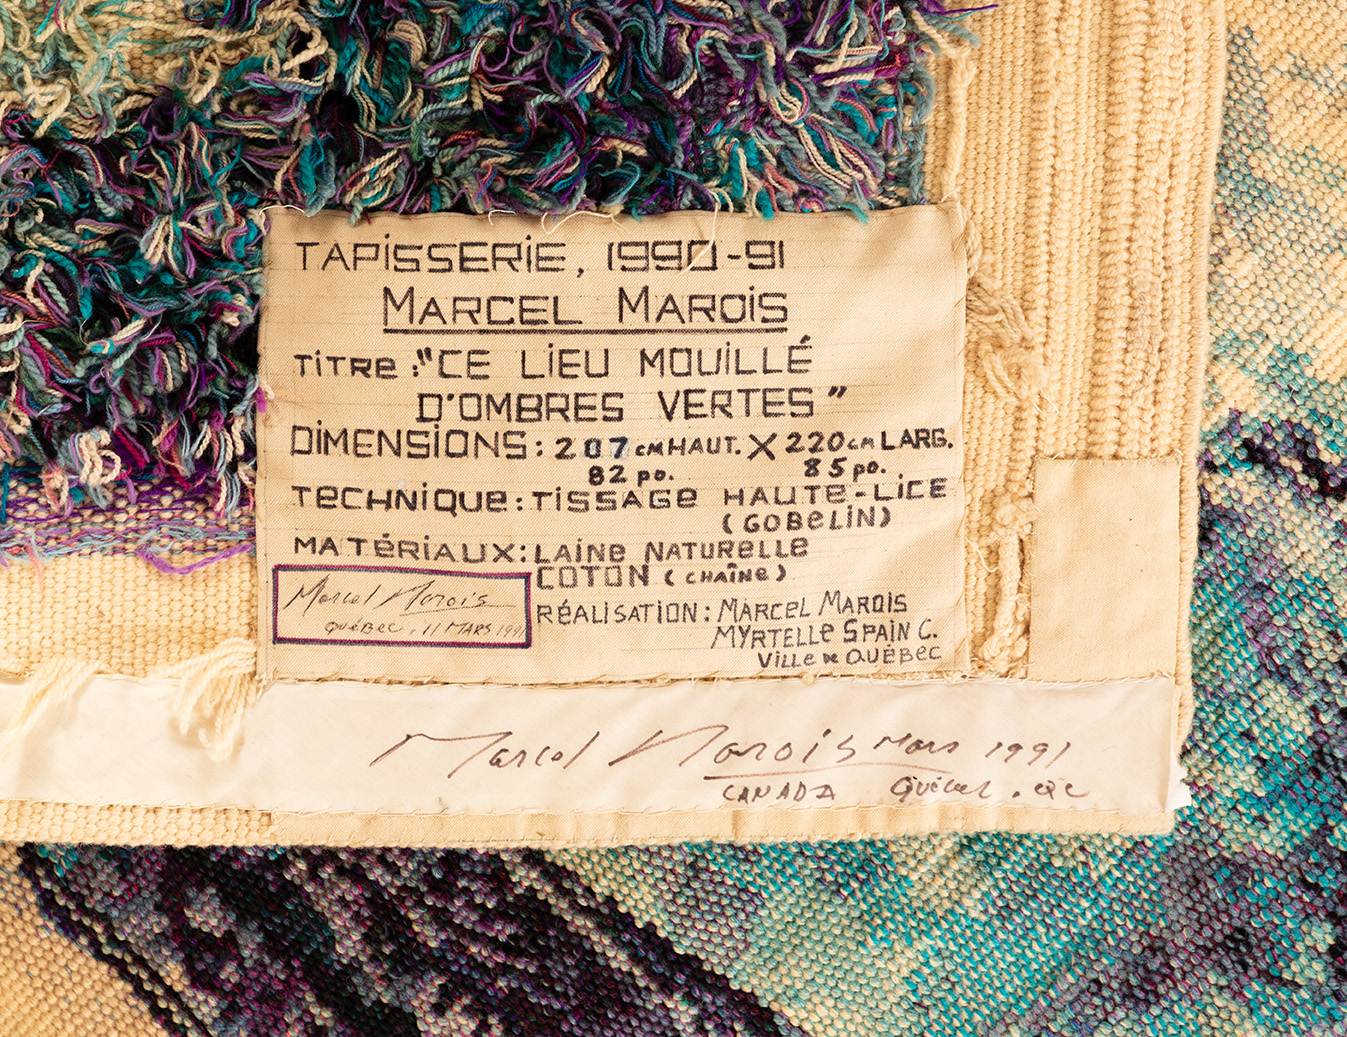 TAPiSSERiE, 1990-91
MARCEL MAROiS
TiTRe : "CE LiEU MOUiLLÉ
D'OMBRES VERTES"
DiMENSiONS : 207 cm HAUT. X 220 cm LARG.
82 po. 85 po.
TeCHNiQUe : TiSSAGe HAUTe-LiCE
(GOBeLiN)
MATÉRiAUX : LAiNe NATURELLe
COTON (CHAÎNe)
RÉALiSATiON : MARCeL MAROiS
MYRTELLe SPAiN C.
ViLLe De QUÉBeC
Marcel Marois
QUÉBeC, 11 MARS 1991
Marcel Marois Mars 1991
CANADA Québec . QC